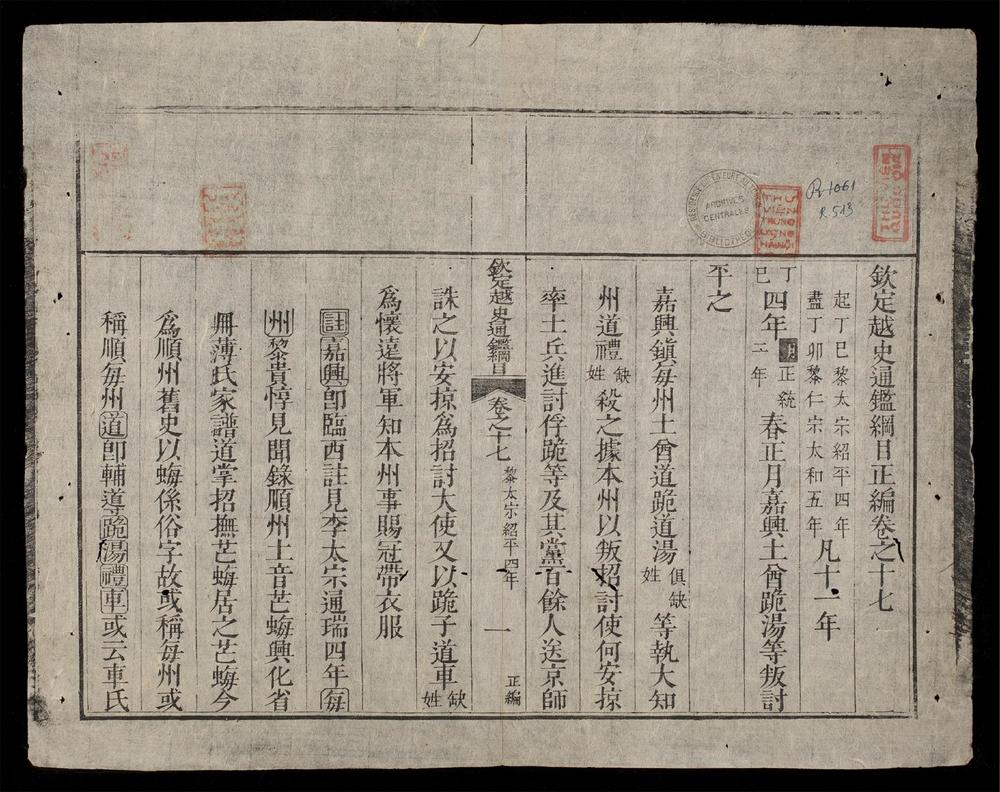 欽定越史通鑑綱目正編卷之十七
起丁巳黎太宗紹平四年
盡丁卯黎仁宗太和五年
凡十一年
丁巳四年明正統二年春正月嘉興土酋跪湯等叛討
平之
嘉興鎭每州土酋道跪道湯俱缺姓等執大知
州道禮缺姓殺之據本州以叛招討使何安掠
率土兵進討俘跪等及其黨百餘人送京師
欽定越史通鑑綱目
卷之十七
黎太宗紹平四年
一
正編
誅之以安掠爲招討大使又以跪子道車缺姓
爲懷遠將軍知本州事賜冠帶衣服
註嘉興卽臨西註見李太宗通瑞四年每
州黎貴惇見聞錄順州土音芒𧋟興化省
冊薄氏家譜道掌招撫芒𧋟居之芒𧋟今
爲順州舊史以𧋟係俗字故或稱每州或
稱順每州道卽輔導跪湯禮車或云車氏
R 1061
R. 513
ARCHIVES
CENTRALES